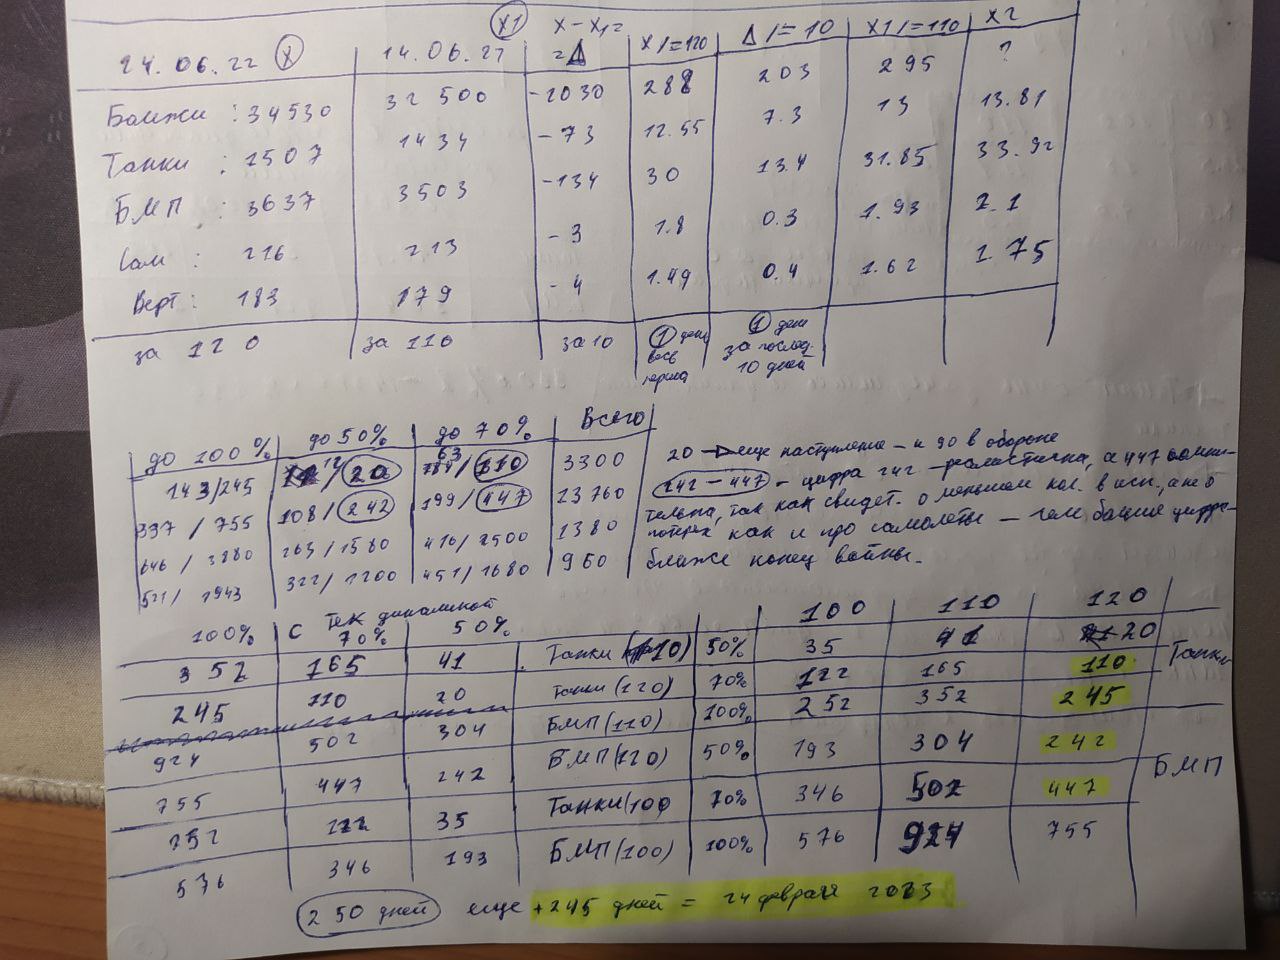 24.06.22 (X) 14.06.22 (X1) X-X1= =Δ X/=120 Δ/=10 X1/=110 X2
Бомжи : 34530 32 500 -2030 288 203 295 ?
Танки : 1507 1434 -73 12.55 7.3 13 13.81
БМП : 3637 3503 -134 30 13.4 31.85 33.92
Сам : 216 213 -3 1.8 0.3 1.93 2.1
Верт : 183 179 -4 1.49 0.4 1.62 1.75
за 120 за 110 за 10 1 день весь период 1 день за послед. 10 дней
до 100% до 50% до 70% Всего
143/245 12/20 63/110 3300
337/755 108/242 199/447 13760
646/3880 263/1580 416/2500 1380
521/1943 322/1200 451/1680 960
20 → еще наступление - и 90 в обороне
242-447 - цифра 242 - реалистична, а 447
тельна, так как свидет. о меньшем кол. в исп., а не о
потерях как и про самолеты - чем больше цифра -
ближе конец войны.
С тек динамикой
100% 70% 50%
352 165 41
245 110 20
924 502 304
755 447 242
252 122 35
576 346 193
100 110 120
Танки (110) 50% 35 41 20 Танки
Танки (120) 70% 122 165 110
БМП (110) 100% 252 352 245
БМП (120) 50% 193 304 242 БМП
Танки (100) 70% 346 502 447
БМП (100) 100% 576 924 755
250 дней еще +245 дней = 24 февраля 2023